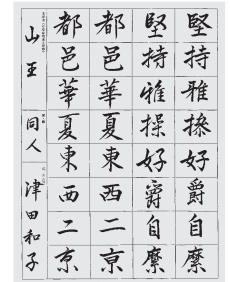 堅持雅操好爵自縻
堅持雅操好爵自縻
都邑華夏東西二京
都邑華夏東西二京
山王
同人
津田和子